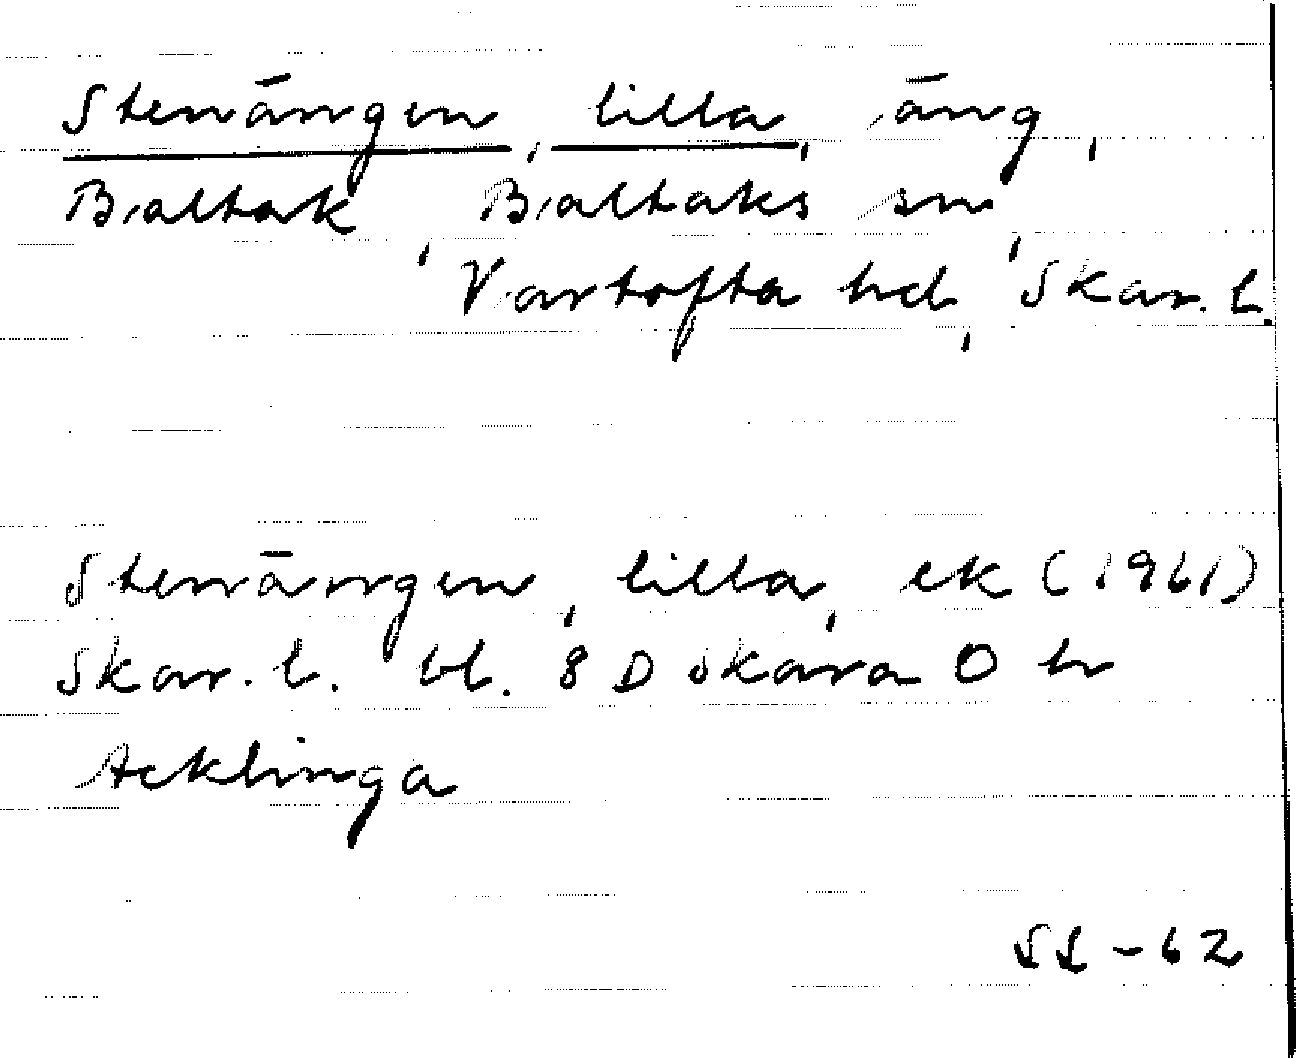 Stenängen, lilla, äng,
Baltak, Baltaks sn,
Vartofta hd, Skar. l.
Stenängen, lilla, ek (1961)
Skar. l. bl. 8 D Skara O h
Acklinga
SL - 62